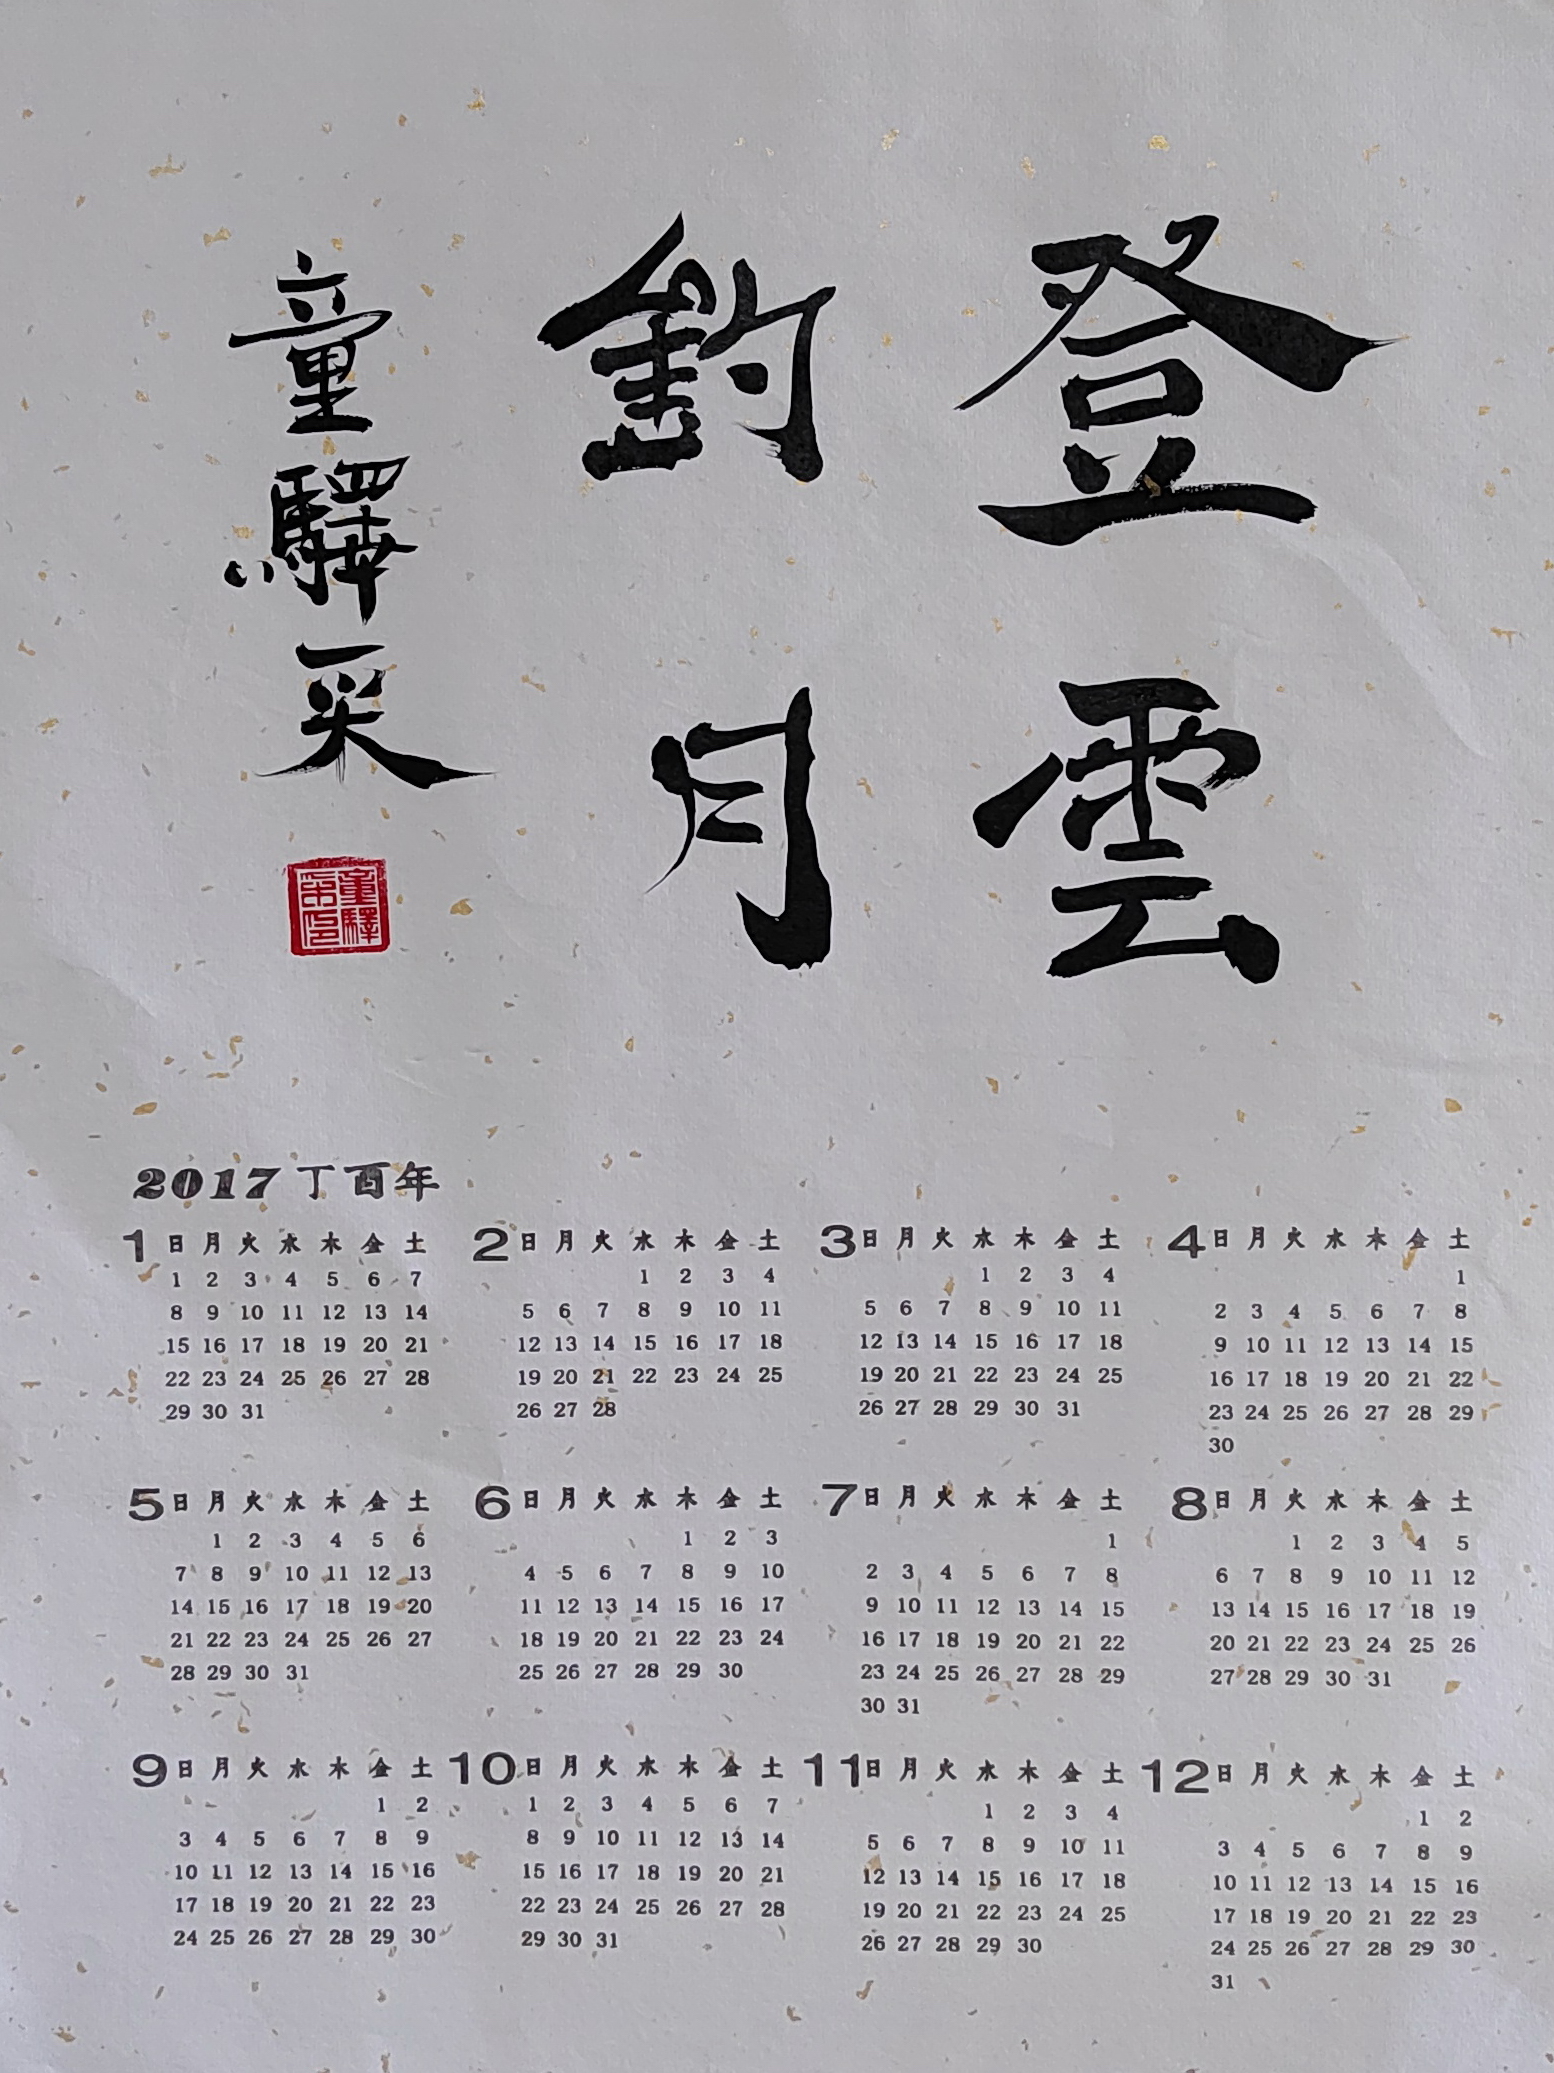 登雲
釣月
童驛采
童驛
采印
2017丁酉年
1
日 月 火 水 木 金 土
1 2 3 4 5 6 7
8 9 10 11 12 13 14
15 16 17 18 19 20 21
22 23 24 25 26 27 28
29 30 31
2
日 月 火 水 木 金 土
1 2 3 4
5 6 7 8 9 10 11
12 13 14 15 16 17 18
19 20 21 22 23 24 25
26 27 28
3
日 月 火 水 木 金 土
1 2 3 4
5 6 7 8 9 10 11
12 13 14 15 16 17 18
19 20 21 22 23 24 25
26 27 28 29 30 31
4
日 月 火 水 木 金 土
1
2 3 4 5 6 7 8
9 10 11 12 13 14 15
16 17 18 19 20 21 22
23 24 25 26 27 28 29
30
5
日 月 火 水 木 金 土
1 2 3 4 5 6
7 8 9 10 11 12 13
14 15 16 17 18 19 20
21 22 23 24 25 26 27
28 29 30 31
6
日 月 火 水 木 金 土
1 2 3
4 5 6 7 8 9 10
11 12 13 14 15 16 17
18 19 20 21 22 23 24
25 26 27 28 29 30
7
日 月 火 水 木 金 土
1
2 3 4 5 6 7 8
9 10 11 12 13 14 15
16 17 18 19 20 21 22
23 24 25 26 27 28 29
30 31
8
日 月 火 水 木 金 土
1 2 3 4 5
6 7 8 9 10 11 12
13 14 15 16 17 18 19
20 21 22 23 24 25 26
27 28 29 30 31
9
日 月 火 水 木 金 土
1 2
3 4 5 6 7 8 9
10 11 12 13 14 15 16
17 18 19 20 21 22 23
24 25 26 27 28 29 30
10
日 月 火 水 木 金 土
1 2 3 4 5 6 7
8 9 10 11 12 13 14
15 16 17 18 19 20 21
22 23 24 25 26 27 28
29 30 31
11
日 月 火 水 木 金 土
1 2 3 4
5 6 7 8 9 10 11
12 13 14 15 16 17 18
19 20 21 22 23 24 25
26 27 28 29 30
12
日 月 火 水 木 金 土
1 2
3 4 5 6 7 8 9
10 11 12 13 14 15 16
17 18 19 20 21 22 23
24 25 26 27 28 29 30
31